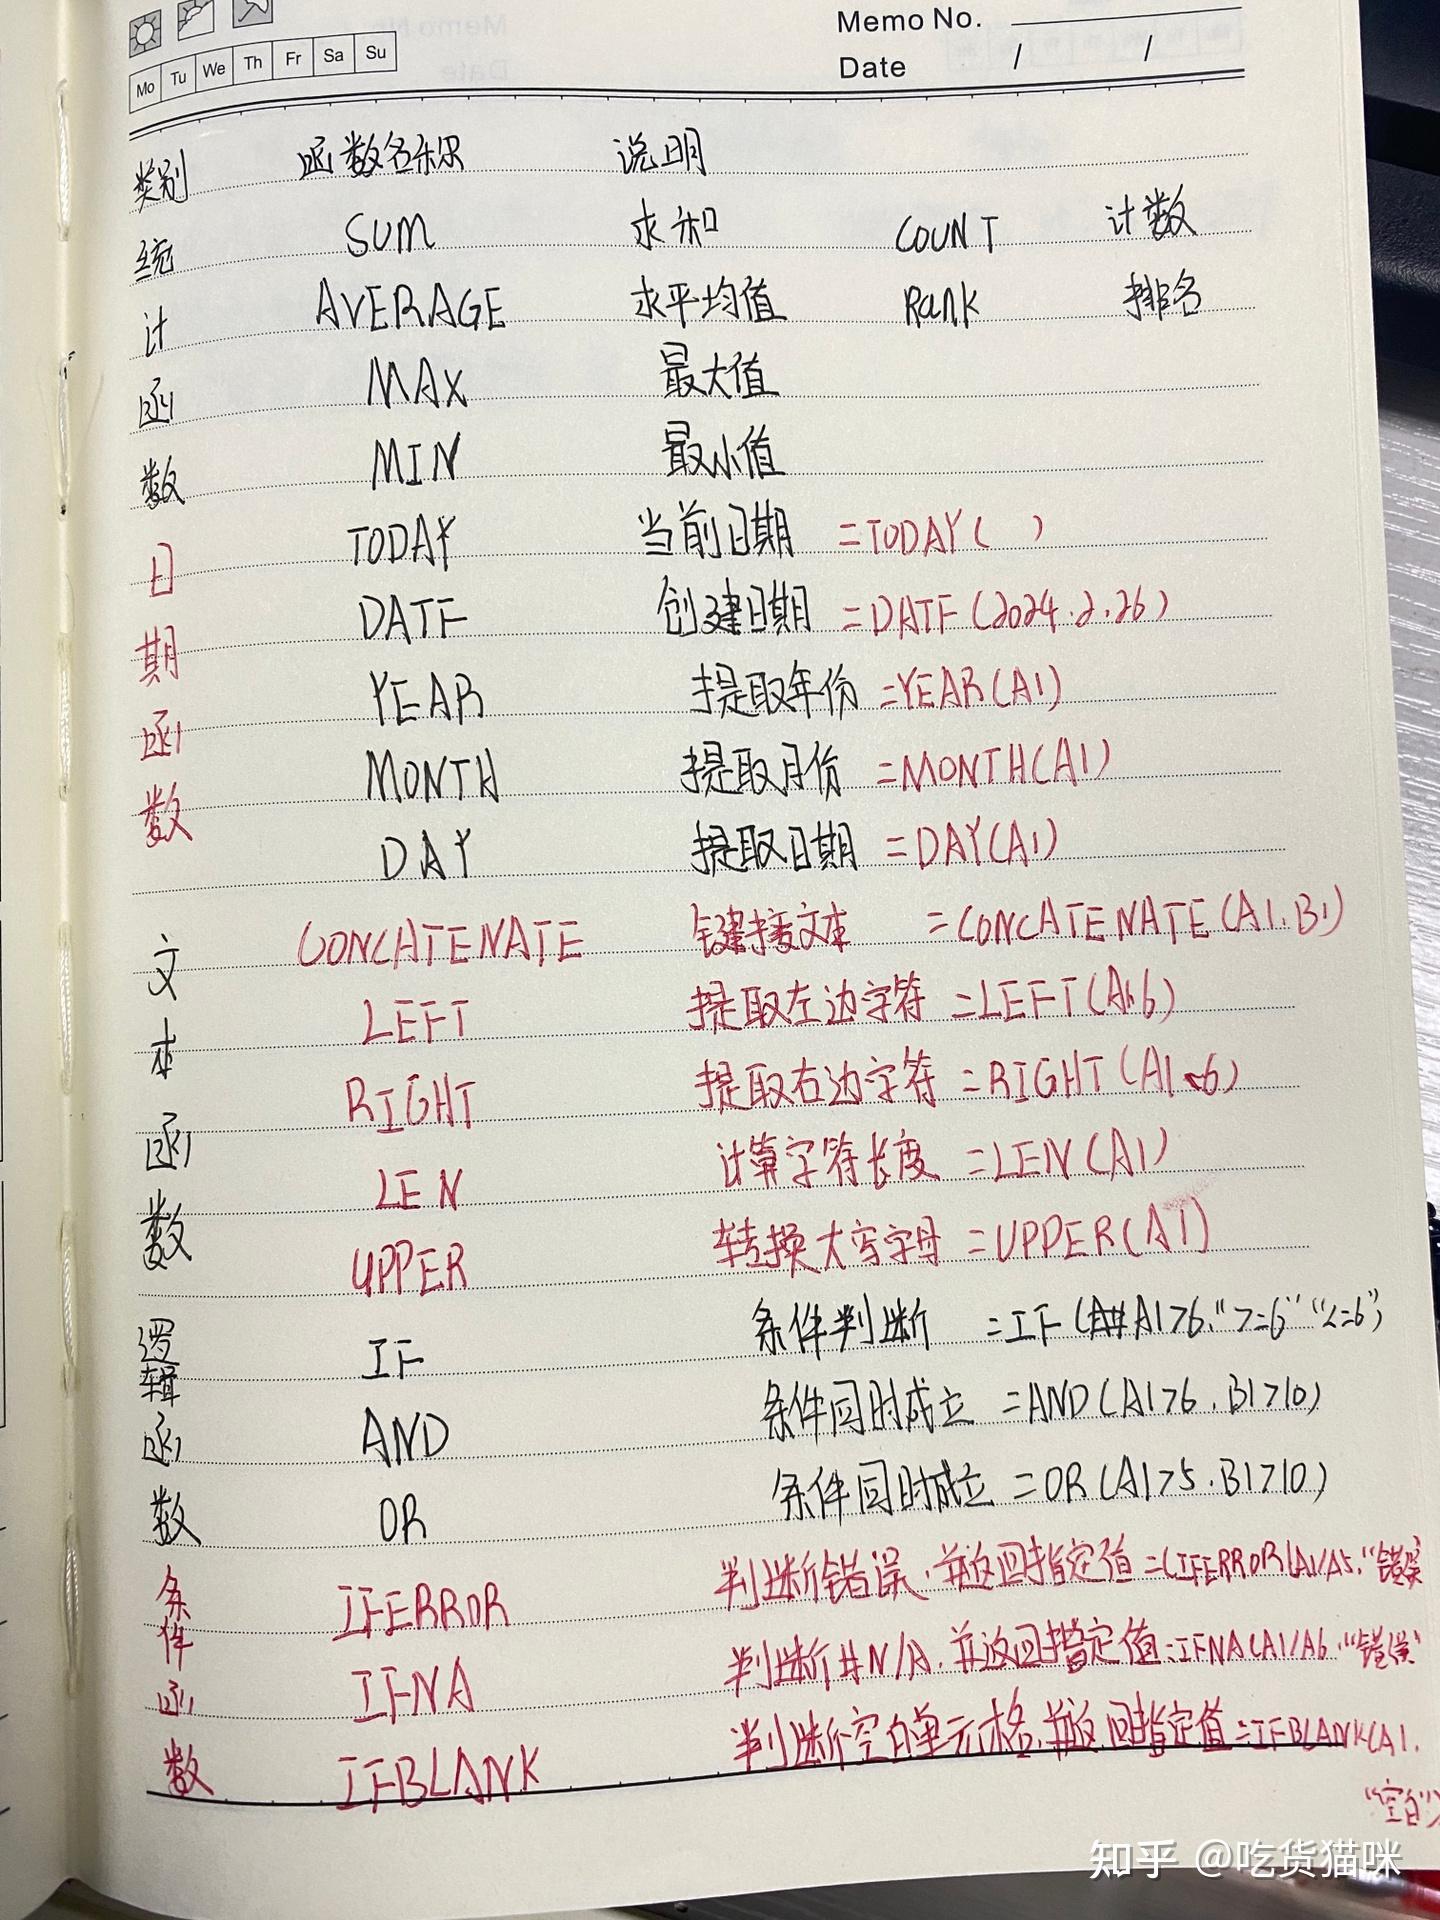 Memo No.
Mo Tu We Th Fr Sa Su
Date / /
类别 函数名称 说明
统 SUM 求和 COUNT 计数
计 AVERAGE 求平均值 Rank 排名
函 MAX 最大值
数 MIN 最小值
日 TODAY 当前日期 =TODAY( )
期 DATF 创建日期 =DATF(2024.2.26)
函 YEAR 提取年份 =YEAR(A1)
数 MONTH 提取月份 =MONTH(A1)
DAY 提取日期 =DAY(A1)
文 CONCATENATE 键接文本 =CONCATENATE(A1.B1)
本 LEFT 提取左边字符 =LEFT(A1.6)
函 RIGHT 提取右边字符 =RIGHT(A1.6)
数 LEN 计算字符长度 =LEN(A1)
UPPER 转换大写字母 =UPPER(A1)
逻辑 IF 条件判断 =IF(A1>6."7=6" "<=6")
函 AND 条件同时成立 =AND(A1>6.B1>10)
数 OR 条件同时成立 =OR(A1>5.B1>10)
条件 IFERROR 判断错误.并返回指定值=(IFERROR(A1/A5."错误
函 IFNA 判断#N/A.并返回指定值=IFNA(A1/A6."错误"
数 IFBLANK 判断空白单元格.并返回指定值=IFBLANK(A1.
"空白")
知乎 @吃货猫咪